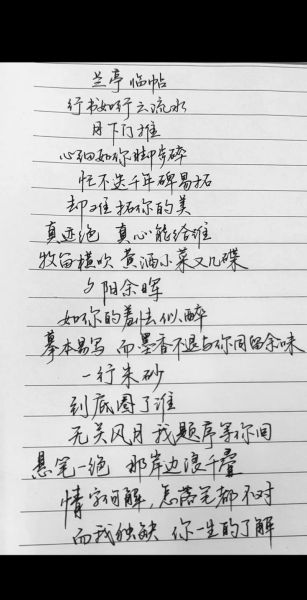 兰亭临帖
行书如行云流水
月下门推
心细如你脚步碎
忙不迭千年碑易拓
却难拓你的美
真迹绝 真心能给谁
牧笛横吹 黄酒小菜又几碟
夕阳余晖
如你的羞怯似醉
摹本易写 而墨香不退与你同留余味
一行朱砂
到底圈了谁
无关风月 我题序等你回
悬笔一绝 那岸边浪千叠
情字何解,怎落笔都不对
而我独缺 你一生的了解